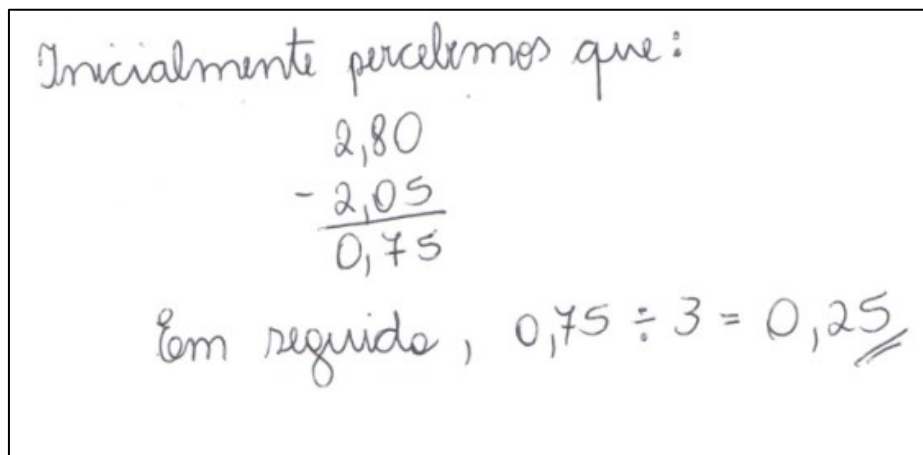 Inicialmente percebemos que:
2,80
- 2,05
0,75
Em seguida, 0,75 ÷ 3 = 0,25